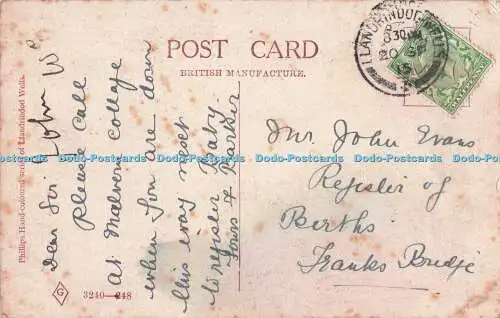 POST CARD
BRITISH MANUFACTURE.
LLANDRINDOD WELLS
8 30 AM
20 SP
Dear Sir
Please call
at Malvern Cottage
when you are down
this way next
to register Baby.
Yours &
John W
Mr John Evans
Register of
Births
Franks Bridge
Phillips Hand-coloured series of Llandrindod Wells.
G
3240—248
Dodo-Postcards Dodo-Postcards Dodo-Postcards Dodo-Postcards Dodo-Postcards Dodo-Postcards